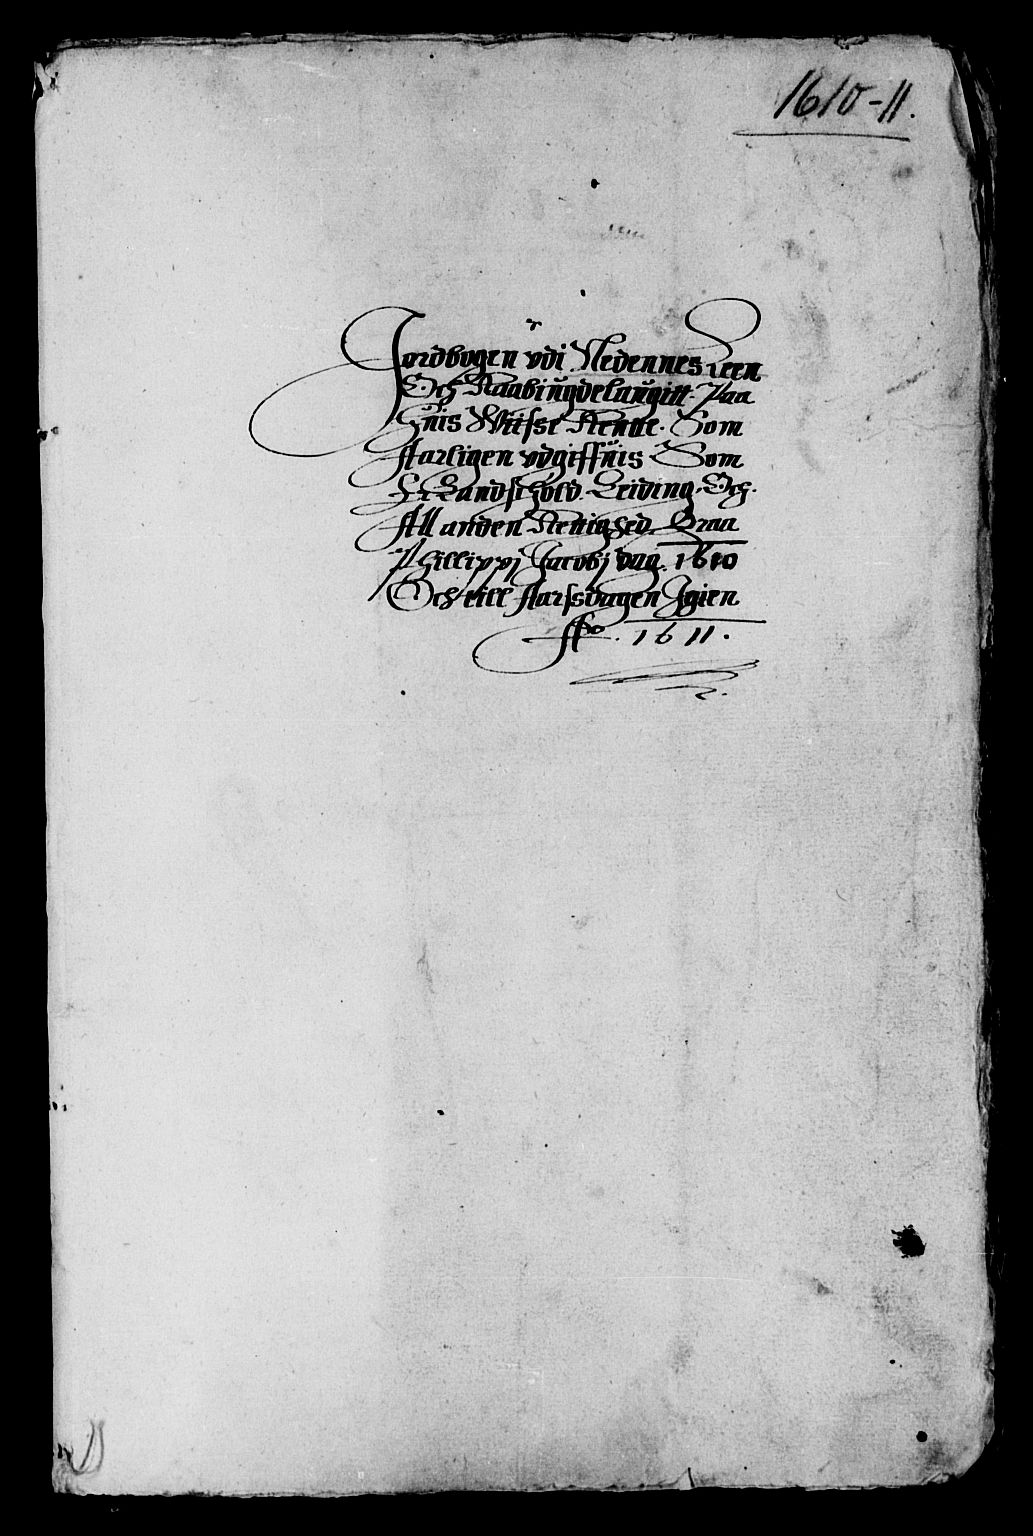 1610-11.
Jordbogen vdi Nedennes Leen
Och Raabiugdelaugitt. Paa
Huis Wiisse Rentte. Som
Aarligen vdgiffuis Som
Er Landschold. Leiding, Och.
All anden Rettighed. Fraa
Phillippj Jacobj dag. 1610
Och till Aarssdagen Igien
Ao. 1611.